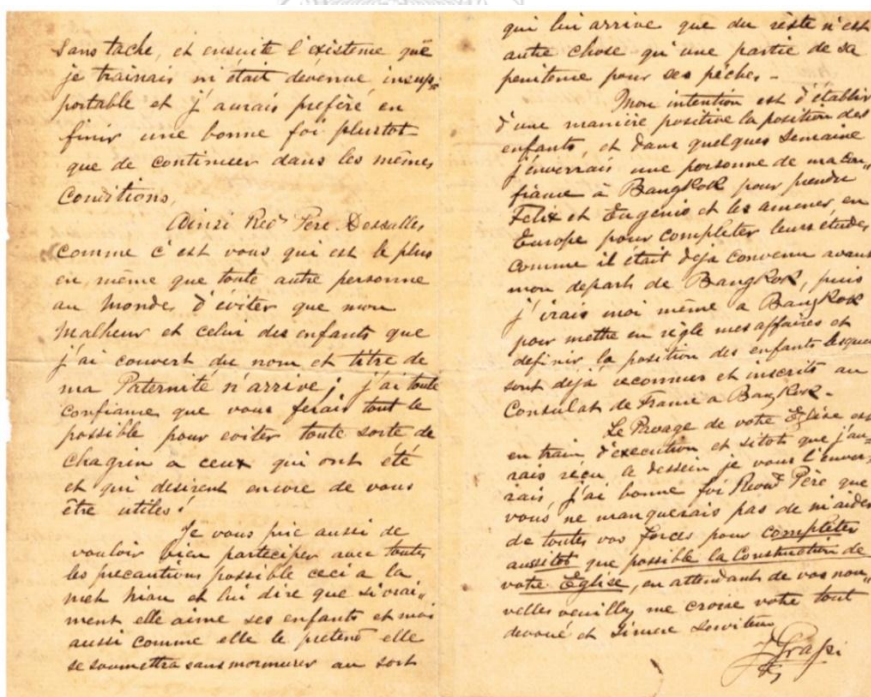 sans tache, et ensuite l'existeme que
je trainais m'était devenue insup=
portable et j'aurais preferé en
finir une bonne foi plustot-
que de continuer dans les mêmes
Conditions,
Ainsi Red Pere Dessalles
comme c'est vous qui est le plus
en même que toute autre personne
au Monde, d'éviter que mon
Malheur et celui des enfants que
j'ai couvert du nom et titre de
ma Paternité n'arrive; j'ai toute
Confiance que vous ferais tout le
possible pour eviter toute sorte de
chagrin a ceux qui ont été
et qui desirent encore de vous
être utiles!
Je vous prie aussi de
vouloir bien participer avec toutes
les precautions possible ceci a la
meh Niau et lui dire que si vrai-
ment elle aime ses enfants et moi
aussi comme elle le pretent elle
se soumettra sans mormurer au sort
qui lui arrive que du reste n'est
autre chose qu'une partie de sa
peniteme pour ses pêches -
Mon intention est d'établir
d'une manière positive la position des
enfants, et dans quelques Semaine
j'enverrais une personne de ma con"
fiance à BangKok pour prendre
Felix et Eugenio et les amener en
Europe pour completer leurs études
Comme il était deja Convenu avant
mon depart de BangKok, puis
j'irais moi même a BangKok
pour mettre en règle mes affaires et
definir la position des enfants lesquels
sont déjà reconnus et inscrits au
Consulat de France a BangKok -
Le Pavage de votre Eglise est
en train d'execution et sitot que j'au-
rais réçu a dessein je vous l'enver-
rais, j'ai bonne foi Revd Père que
vous ne manquerais pas de m'aider
de toutes vos forces pour completer
aussitot que possible la Construction de
votre Eglise, en attendant de vos nou"
velles veuillez me croire votre tout
devoué et Sincere Serviteur
J Grassi